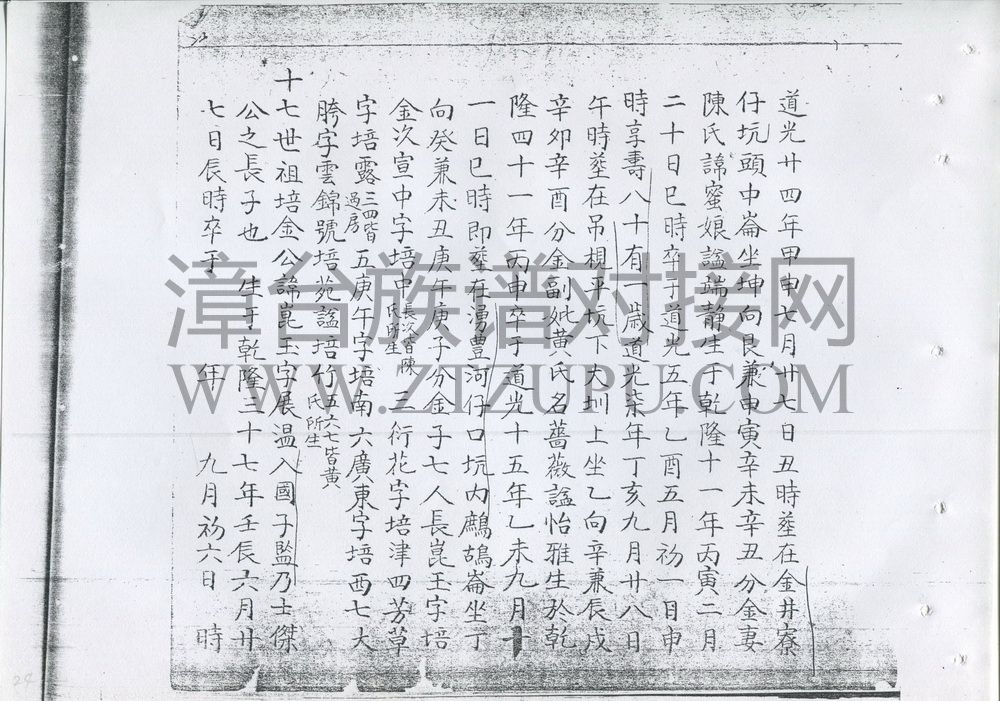 道光廿四年甲申七月廿七日丑時塟在金井寮
仔坑頭中崙坐坤向艮兼申寅辛未辛丑分金妻
陳氏諱蜜娘諡端静生于乾隆十一年丙寅二月
二十日巳時卒于道光五年乙酉五月初一日申
時享壽八十有一歲道光柒年丁亥九月廿八日
午時塟在吊梘平坑下大圳上坐乙向辛兼辰戌
辛卯辛酉分金副妣黄氏名薔薇諡怡雅生於乾
隆四十一年丙申卒于道光十五年乙未九月十
一日巳時即塟在湧豊河仔口坑内鷓鴣崙坐丁
向癸兼未丑庚午庚子分金子七人長崑玉字培
金次宣中字培中長次皆陳氏所生三衍花字培津四芳草
字培露三四皆過房五庚午字培南六廣東字培西七大
胯字雲錦號培苑諡培竹五六七皆黄氏所生
十七世祖培金公諱崑玉字展温入國子監乃士傑
公之長子也 生于乾隆三十七年壬辰六月廿
七日辰時卒于 年 九月初六日 時
漳台族谱对接网
WWW.ZTZUPU.COM
24